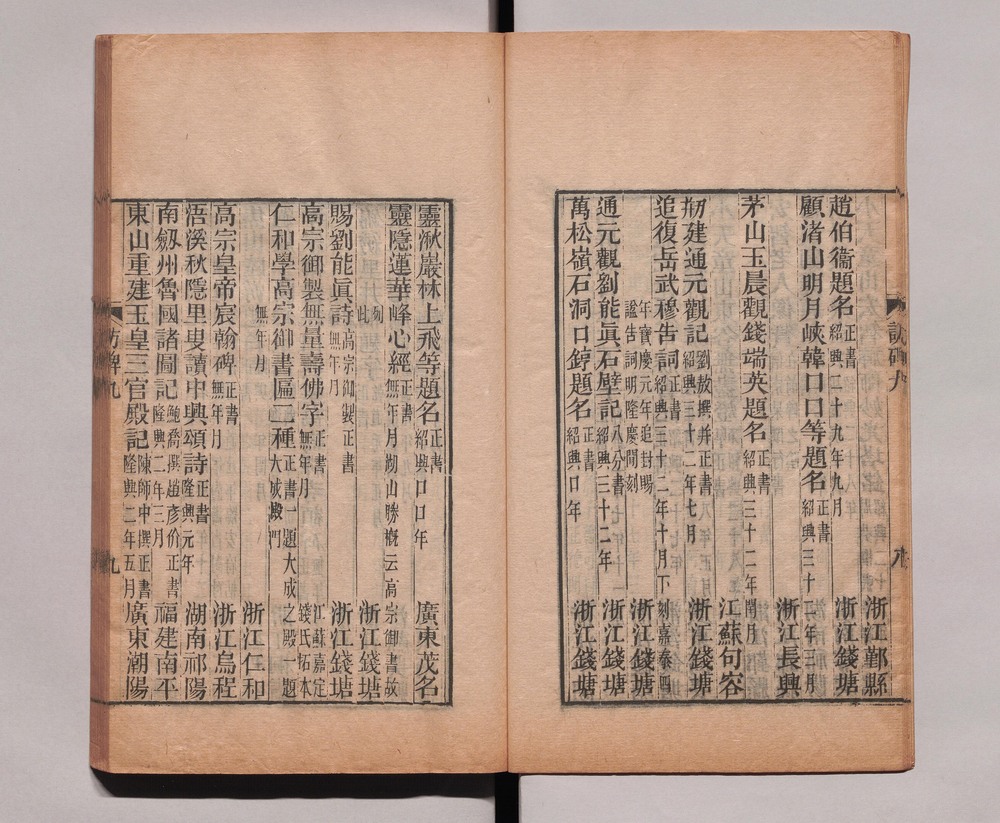 浙江鄞縣
趙伯衞題名正書紹興二十九年九月 浙江錢塘
顧渚山明月峽韓口口等題名正書紹興三十二年三月
浙江長興
茅山玉晨觀錢端英題名正書紹興三十二年閏月 江蘇句容
刱建通元觀記劉敖撰并正書紹興三十二年七月 浙江錢塘
追復岳武穆告詞正書紹興三十二年十月下刻嘉泰四
年寶慶元年追封賜諡告詞明隆慶間刻 浙江錢塘
通元觀劉能眞石壁記八分書紹興三十二年 浙江錢塘
萬松嶺石洞口錞題名正書紹興口年 浙江錢塘
訪碑九
靈湫巖林上飛等題名正書紹興口口年 廣東茂名
靈隱蓮華峰心經正書無年月湖山勝槪云高宗御書故
列此 浙江錢塘
賜劉能眞詩高宗御製正書無年月 浙江錢塘
高宗御製無量壽佛字正書無年月 江蘇嘉定錢氏拓本
仁和學高宗御書匾二種正書一題大成之殿一題大成殿門
無年月 浙江仁和
高宗皇帝宸翰碑正書無年月 浙江烏程
浯溪秋隱里叟讀中興頌詩正書隆興元年 湖南祁陽
南劔州魯國諸圖記鮑喬撰趙彥价正書隆興二年三月 福建南平
東山重建玉皇三官殿記陳師中撰正書隆興二年五月 廣東潮陽
訪碑九
九